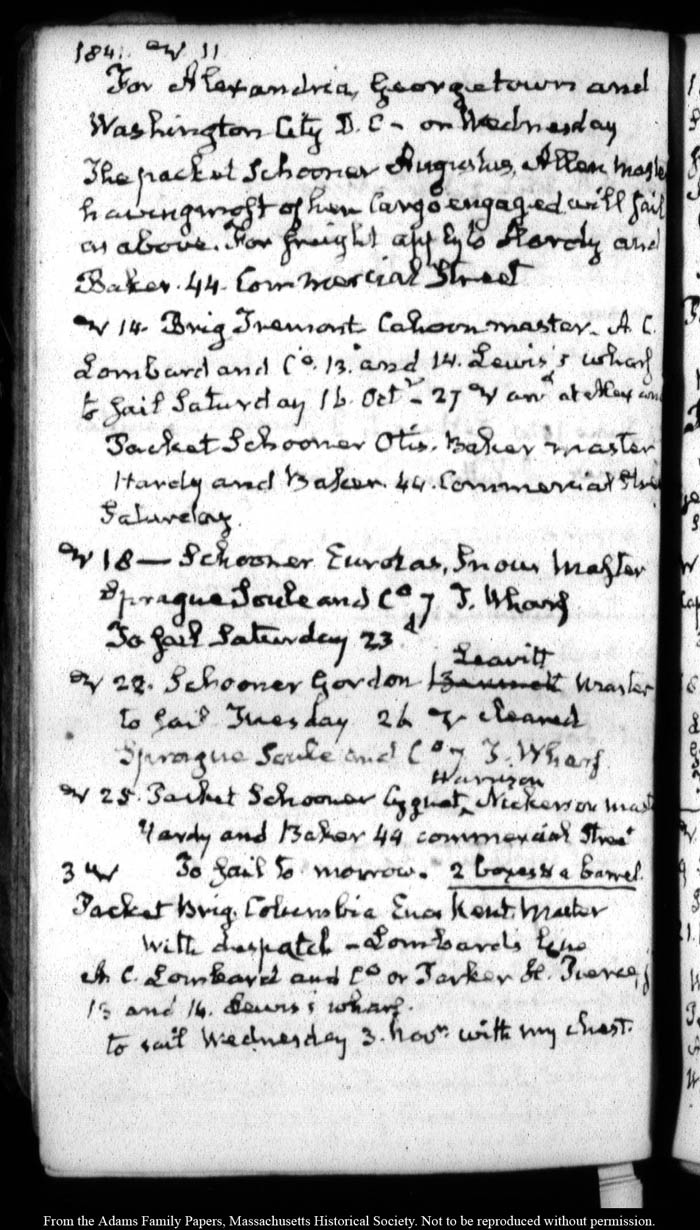 184 11
For Alexandria, Georgetown and
Washington City D.C – on Wednesday
The packet Schooner Augustus, Allen Maste
having most of her Cargo engaged will sail
as above. For freight apply to Hardy and
Baker. 44. Commercial Street
14. Brig Tremont Cahoon master. A. C.
Lombard and Co. 13. and 14. Lewis's wharf
to sail Saturday 16. Octr – 27 at Alex and
Packet Schooner Otis. Baker master
Hardy and Baker. 44. Commercial Stre
Saturday.
18 — Schooner Eurotas, Snow Master
Sprague Soule and Co 7 T. Wharf
To sail Saturday 23d
Leavitt
22. Schooner Gordon Master
to sail Tuesday 26 cleared
Sprague Soule and Co 7 T. Wharf.
Harrison
25. Packet Schooner Cygnet, Nickerson mast
Hardy and Baker 44 commercial Street
3 To sail to morrow. 2 boxes & a barrel.
Packet Brig. Columbia Kent. Master
with despatch – Lombard's Line
A. C. Lombard and Co or Parker H. Pierce, J
13 and 14. Lewis's wharf.
to sail Wednesday 3. Novr. with my chest.
From the Adams Family Papers, Massachusetts Historical Society. Not to be reproduced without permission.